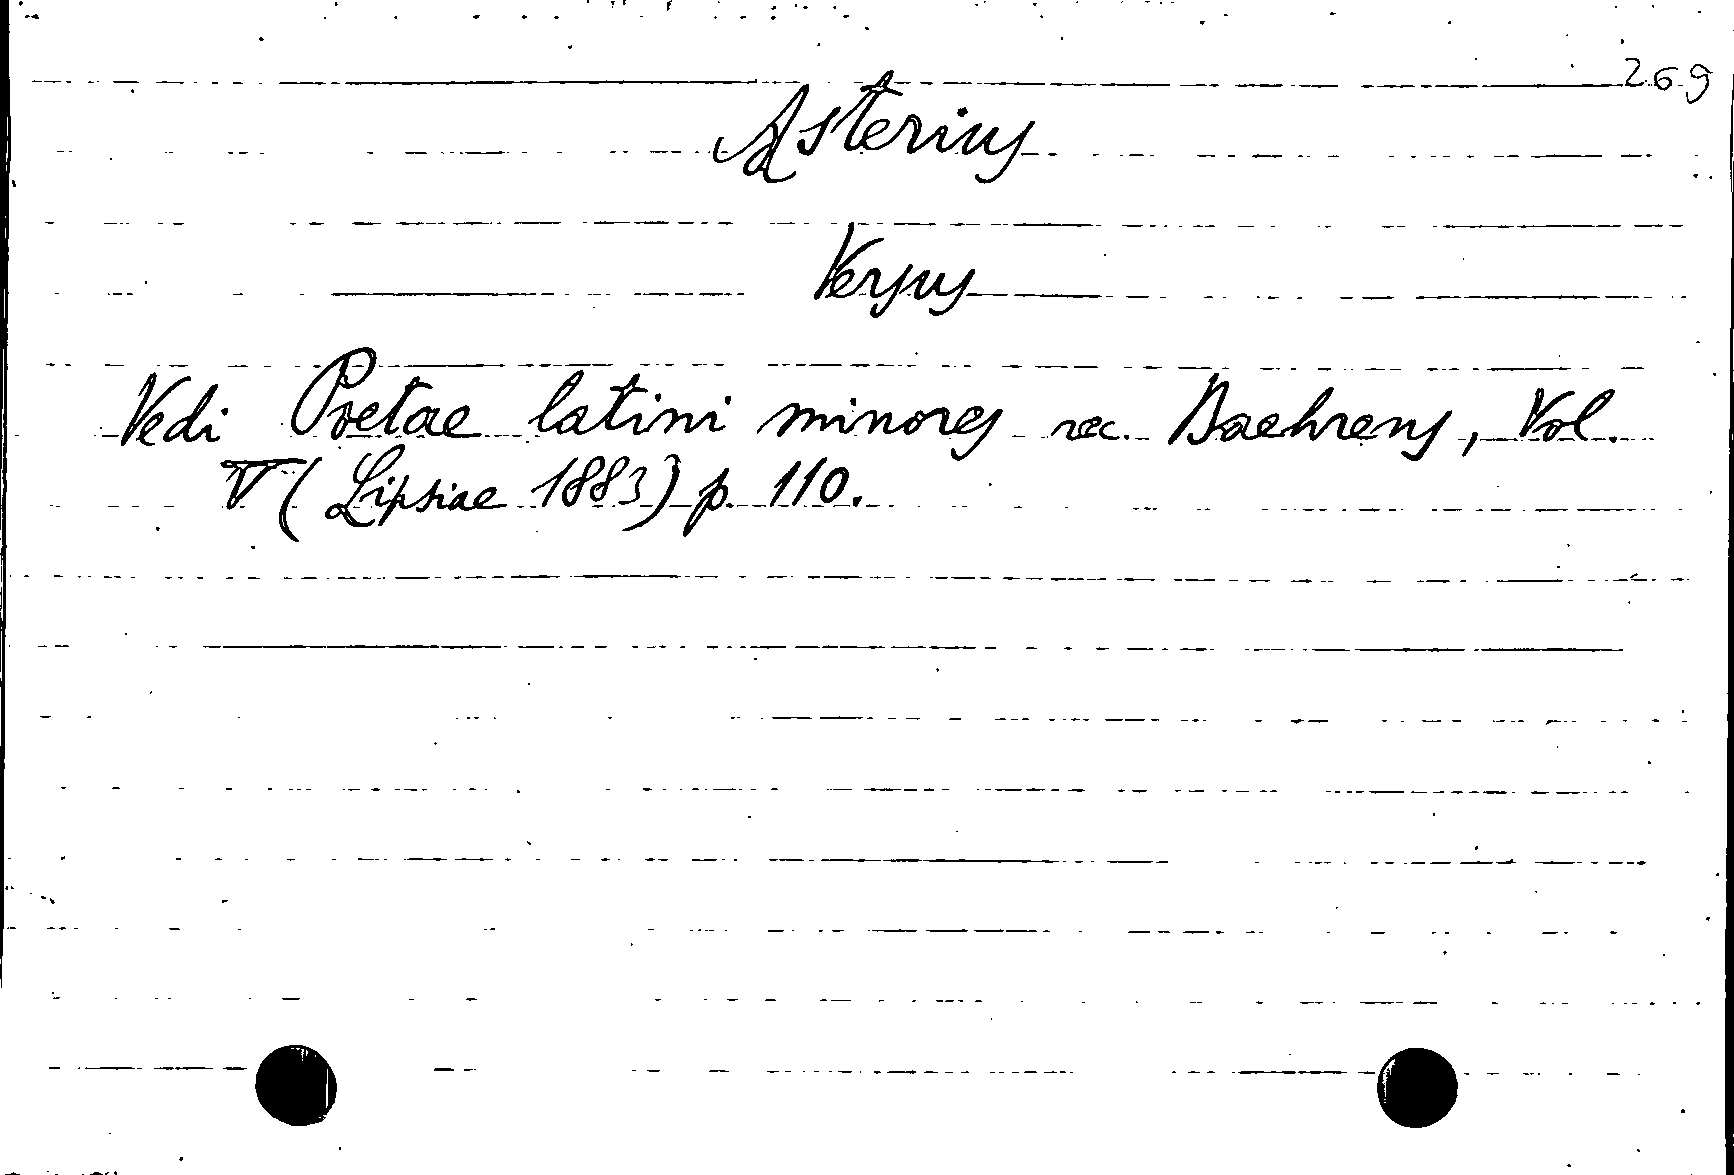 269
Asterius
Versus
Vedi Poetae latini minores rec. Baehrens, Vol.
V (Lipsiae 1883) p. 110.